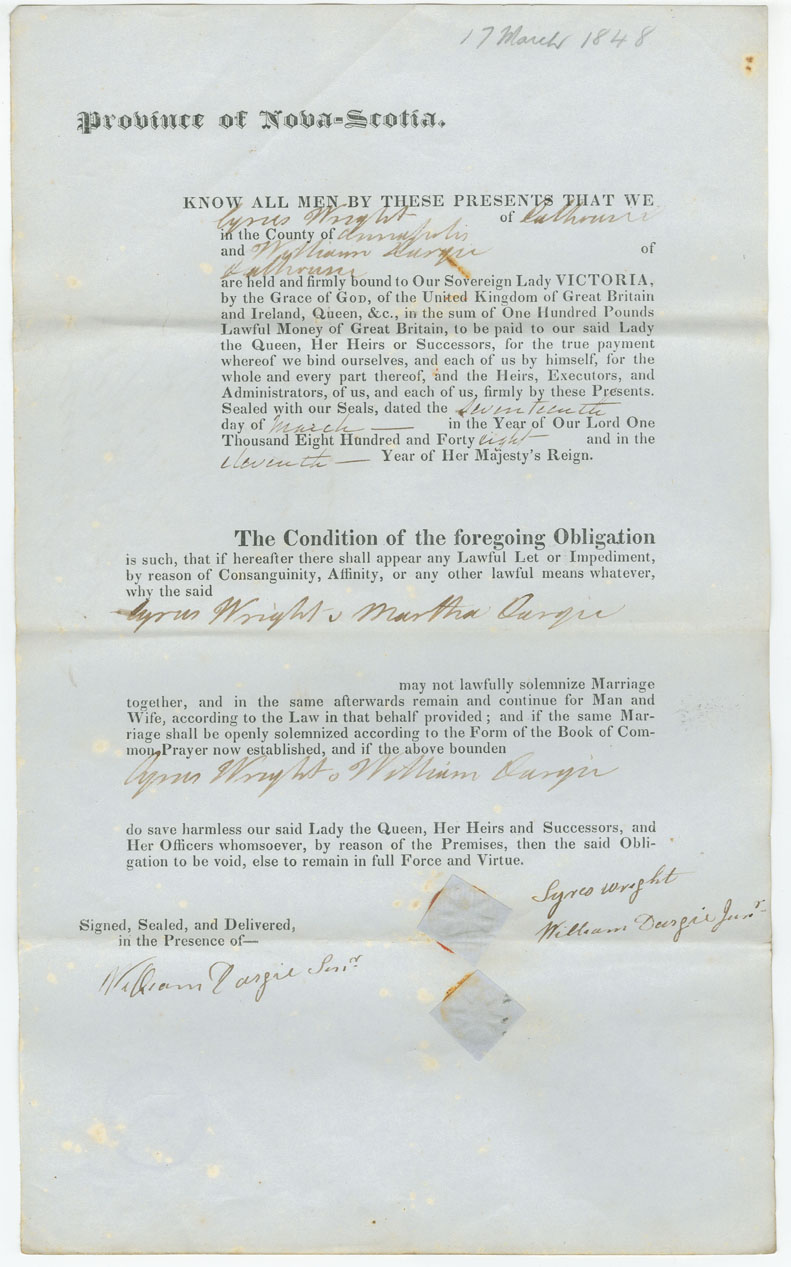 17 March 1848
Province of Nova-Scotia.
KNOW ALL MEN BY THESE PRESENTS THAT WE
Cyrus Wright of Dalhousie
in the County of Annapolis
and William Dargie of
Dalhousie
are held and firmly bound to Our Sovereign Lady VICTORIA,
by the Grace of GOD, of the United Kingdom of Great Britain
and Ireland, Queen, &c., in the sum of One Hundred Pounds
Lawful Money of Great Britain, to be paid to our said Lady
the Queen, Her Heirs or Successors, for the true payment
whereof we bind ourselves, and each of us by himself, for the
whole and every part thereof, and the Heirs, Executors, and
Administrators, of us, and each of us, firmly by these Presents.
Sealed with our Seals, dated the Seventeenth
day of March — in the Year of Our Lord One
Thousand Eight Hundred and Forty eight and in the
eleventh — Year of Her Majesty's Reign.
The Condition of the foregoing Obligation
is such, that if hereafter there shall appear any Lawful Let or Impediment,
by reason of Consanguinity, Affinity, or any other lawful means whatever,
why the said
Cyrus Wright & Martha Dargie
may not lawfully solemnize Marriage
together, and in the same afterwards remain and continue for Man and
Wife, according to the Law in that behalf provided; and if the same Mar-
riage shall be openly solemnized according to the Form of the Book of Com-
mon Prayer now established, and if the above bounden
Cyrus Wright & William Dargie
do save harmless our said Lady the Queen, Her Heirs and Successors, and
Her Officers whomsoever, by reason of the Premises, then the said Obli-
gation to be void, else to remain in full Force and Virtue.
Syres Wright
William Dargie Junr
Signed, Sealed, and Delivered,
in the Presence of—
William Dargie Senr